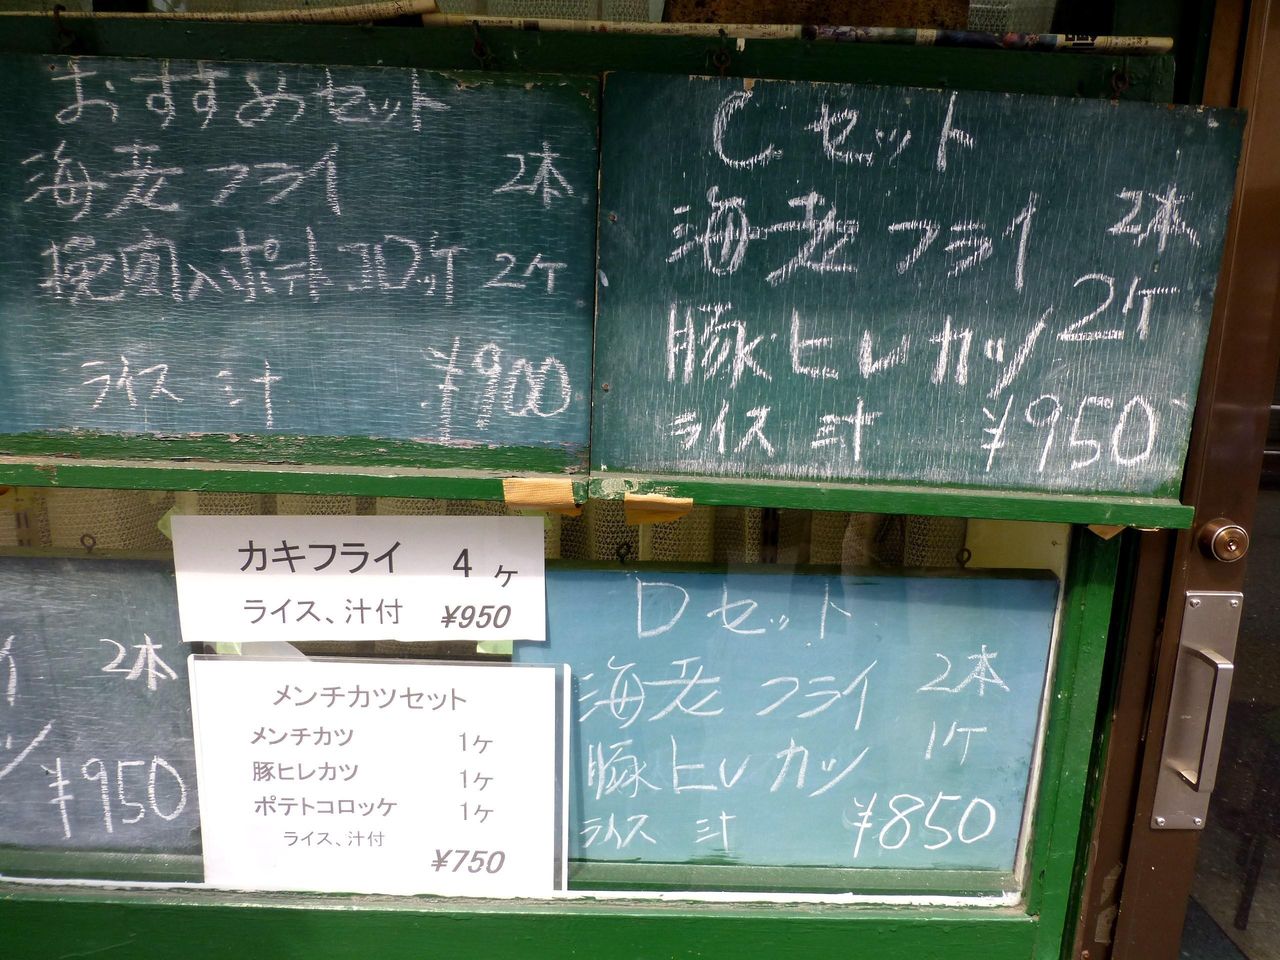 おすすめセット
海老フライ 2本
挽肉入ポテトコロッケ 2ケ
ライス 汁 ¥900
Cセット
海老フライ 2本
豚ヒレカツ 2ケ
ライス 汁 ¥950
カキフライ 4ケ
ライス、汁付 ¥950
メンチカツセット
メンチカツ 1ケ
豚ヒレカツ 1ケ
ポテトコロッケ 1ケ
ライス、汁付
¥750
イ 2本
ツ
¥950
Dセット
海老フライ 2本
豚ヒレカツ 1ケ
ライス 汁 ¥850